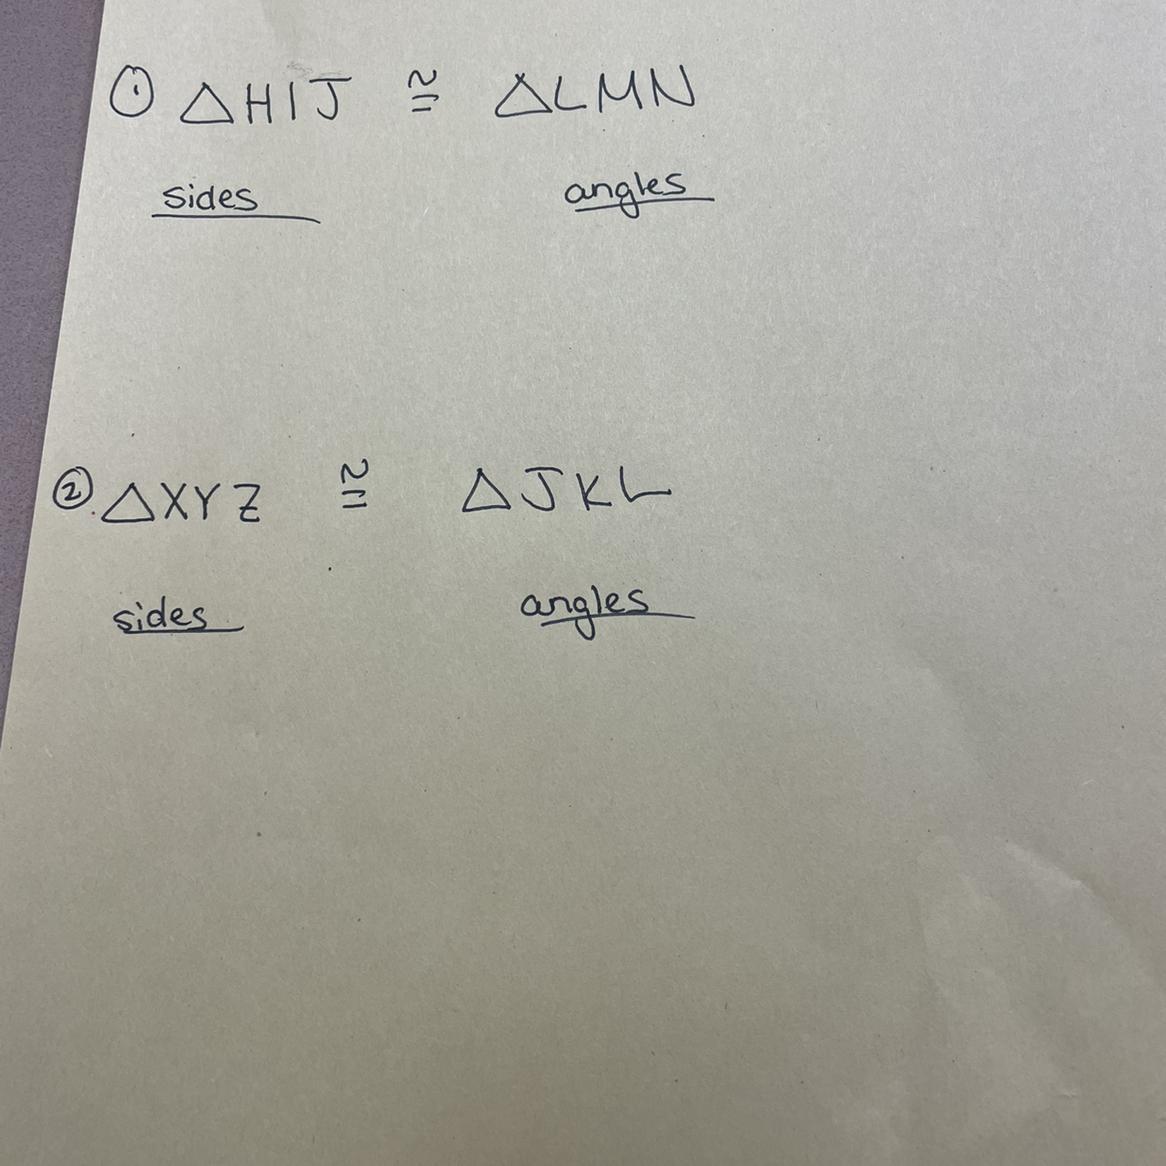 ① △HIJ ≅ △LMN
sides angles
② △XYZ ≅ △JKL
sides angles